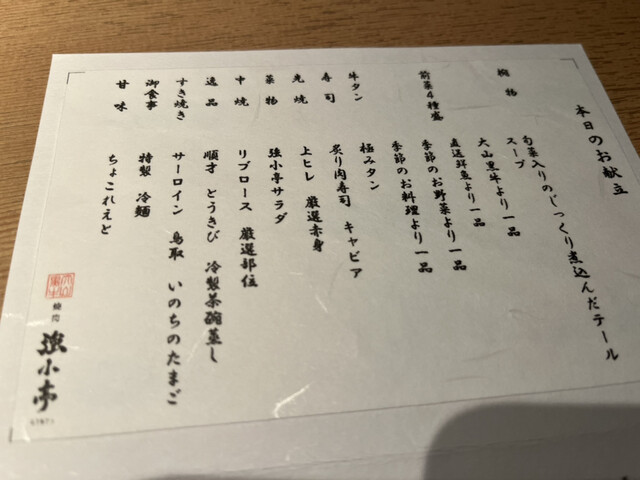 本日のお献立
椀物 旬菜入りのじっくり煮込んだテール
スープ
前菜4種盛 大山黒牛より一品
直送鮮魚より一品
季節のお野菜より一品
季節のお料理より一品
牛タン 極みタン
寿司 炙り肉寿司 キャビア
先焼 上ヒレ 厳選赤身
菜物 強小亭サラダ
中焼 リブロース 厳選部位
逸品 順才 とうきび 冷製茶碗蒸し
すき焼き サーロイン 鳥取 いのちのたまご
御食事 特製 冷麺
甘味 ちょこれえと
焼肉 強小亭